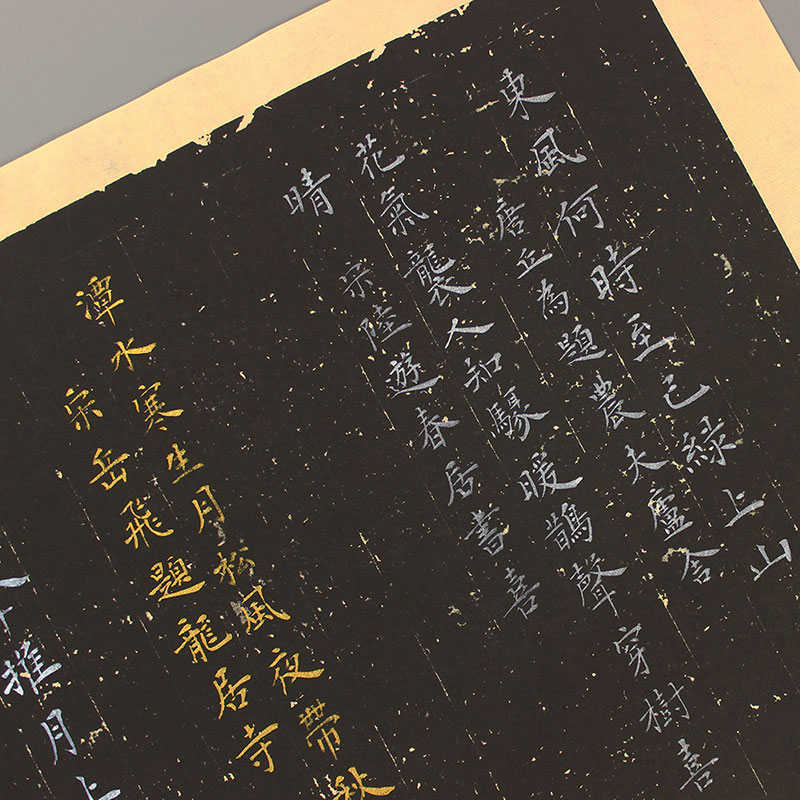 東風何時至已綠上山
唐丘為題農大廬舍
花氣襲人知驟暖鵲聲穿樹喜
晴
宋陸遊春居書喜
潭水寒生月松風夜帶秋
宋岳飛題龍居寺
推月上